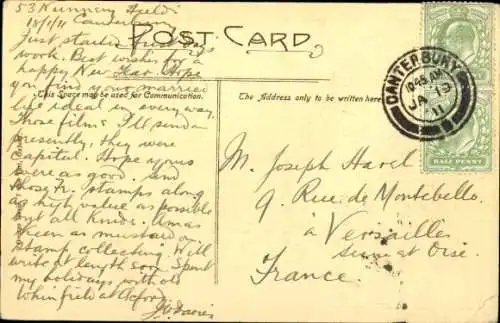 53 Nunnery Fields
18/1/11 Canterbury
Just started
work. Best wishes for a
happy New Year. Hope
you find your married
life ideal in every way.
Those films I'll send
presently, they were
capital. Hope yours
were as good. Send
those Fr. stamps along
as high value as possible
but all kinds. Am as
keen as mustard on
stamp collecting. Will
write at length soon. Spent
my holidays with old
Whinfield at Oxford
POST CARD
This Space may be used for Communication.
The Address only to be written here
CANTERBURY
10.45 AM
JA 19
11
HALF PENNY
M. Joseph Havel
9 Rue de Montebello
à Versailles
Seine et Oise.
France.